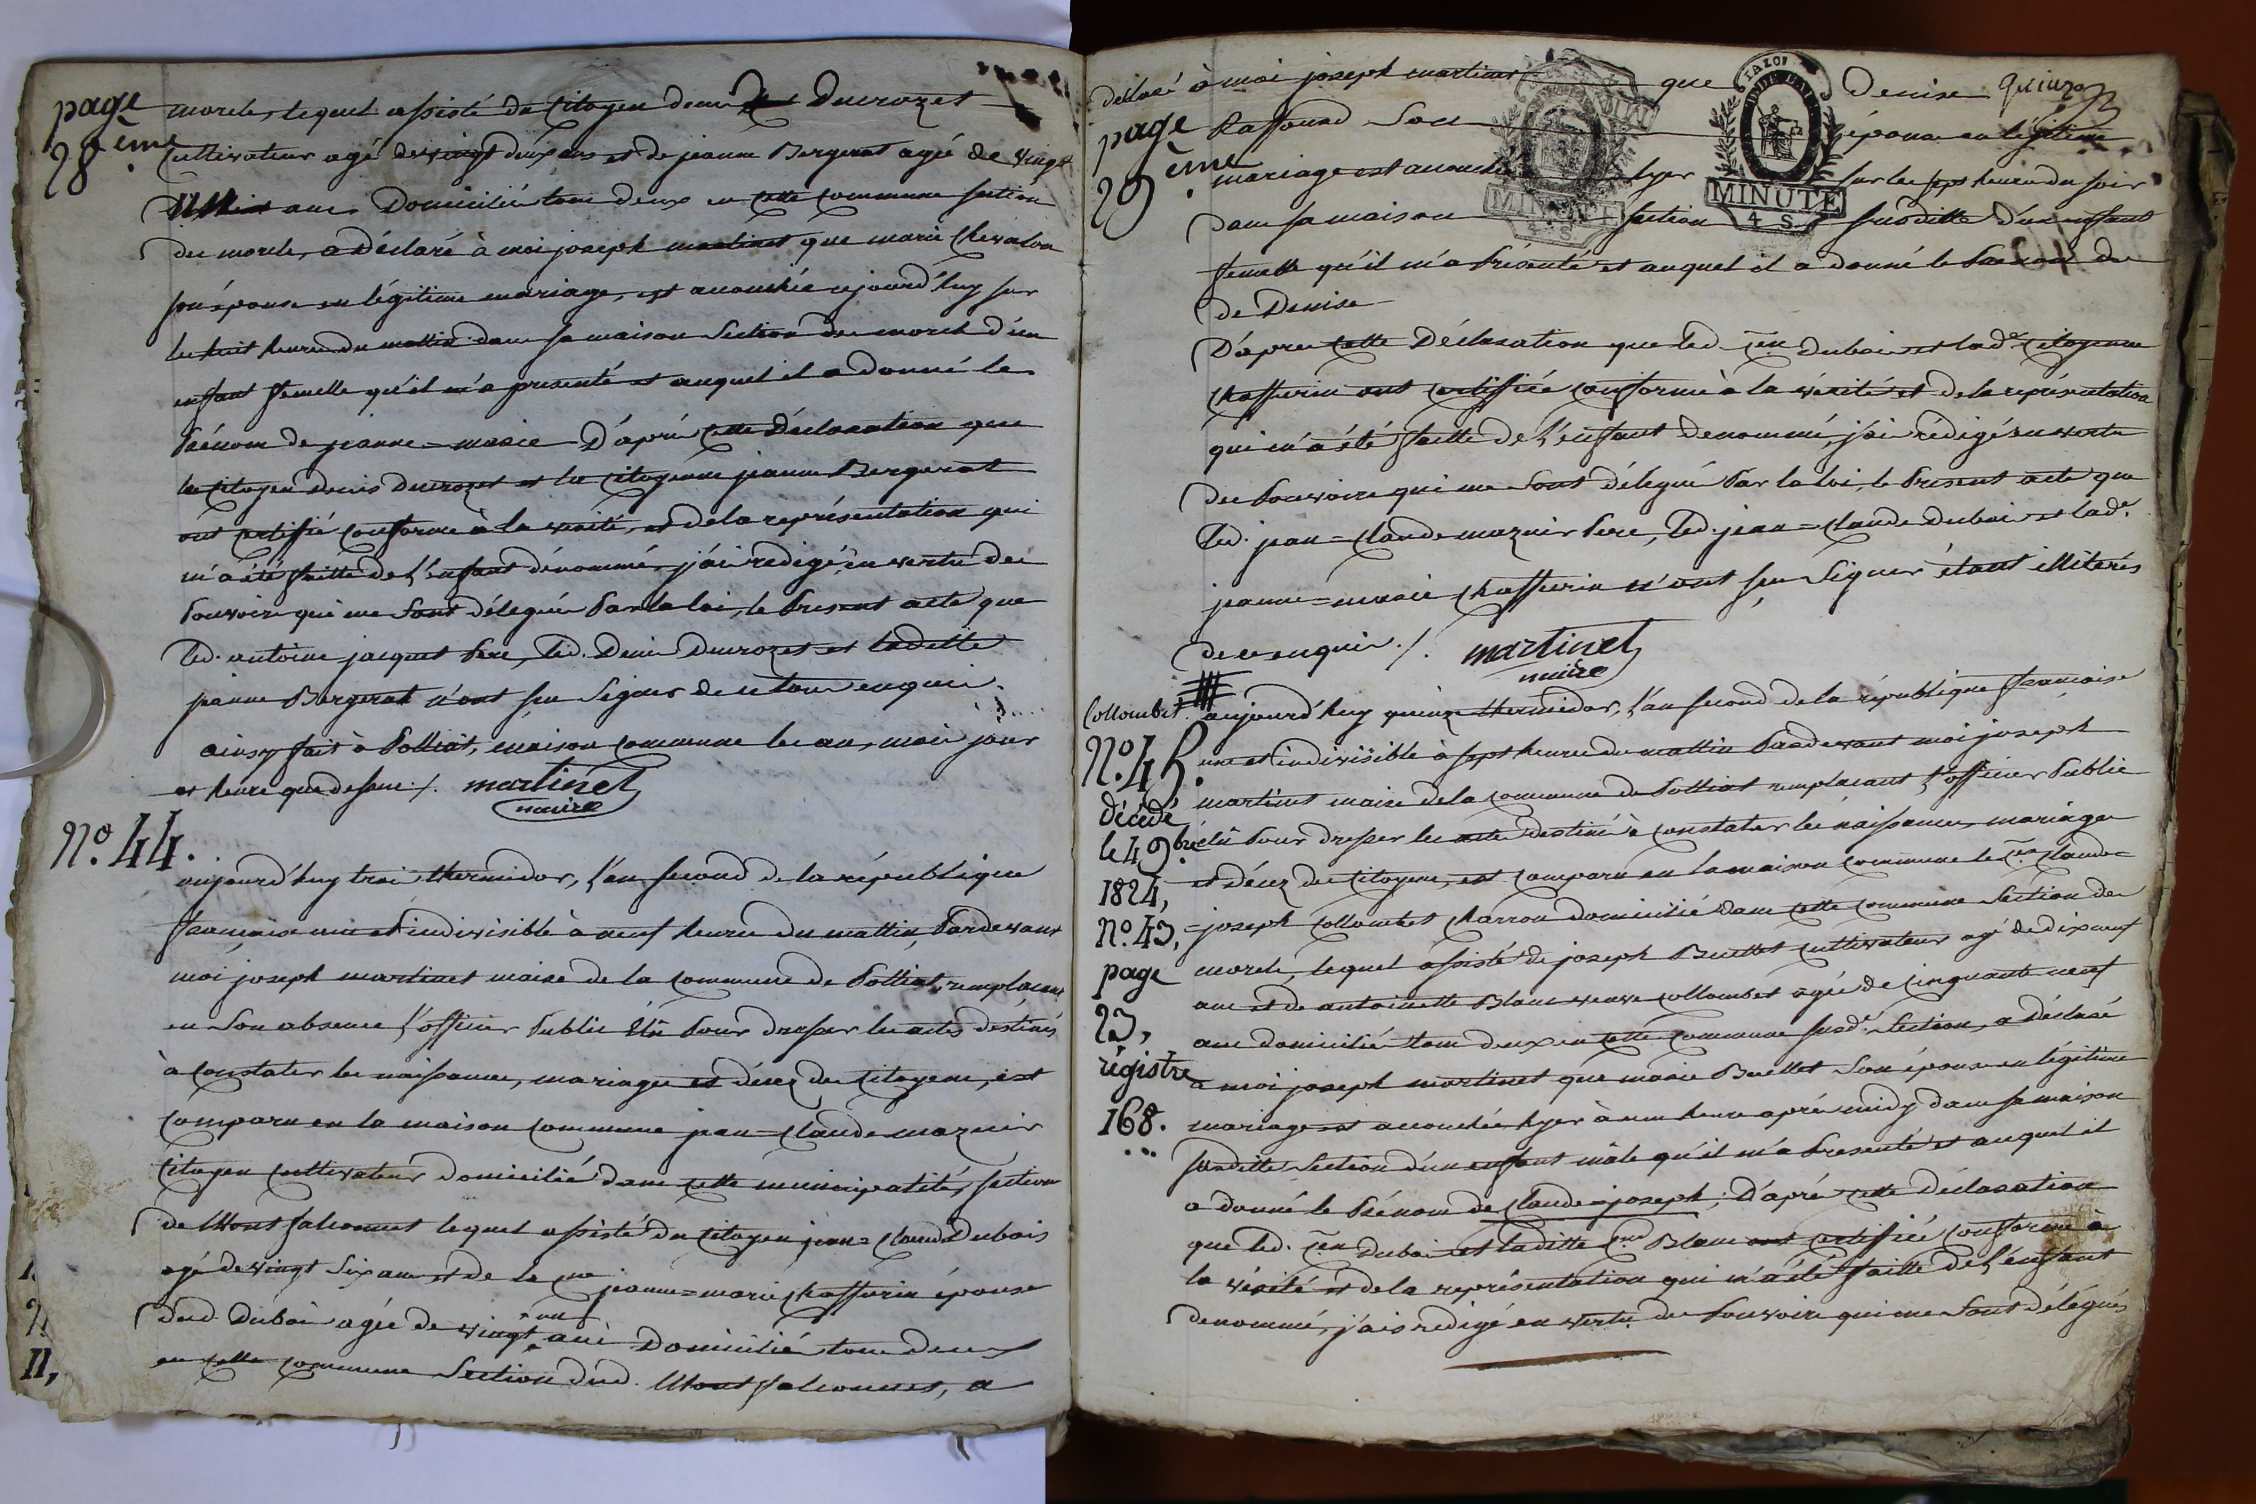 page
28ème
morels, lequel assisté du Citoyen denis Ducrozet
Cultivateur agé de vingt deux ans et de jeanne Bergerat agée de vingt
ans Domiciliés tous deux en cette commune section
des morels, a déclaré à moi joseph martinet que marie Chevalon
son épouse en légitime mariage, est accouchée cejourd'huy sur
les huit heures du mattin dans sa maison Section des morels d'un
enfant femelle qu'il m'a presenté et auquel il a donné le
Prénom de jeanne=marie D'après cette Déclaration que
le Citoyen denis ducrozet et la Citoyenne jeanne Bergerat
ont certifié conforme à la vérité, et de la représentation qui
m'a été faitte de l'enfant dénommé, j'ai redigé en vertu des
Pouvoirs qui me sont délégués Par la loi, le Présent acte que
led. antoine jacquet Pere, led. Denis Ducrozet et laditte
jeanne Bergerat n'ont sçu signer de ce tous enquis.
ainsy fait à Polliat, maison commune les an, mois jour
et heure que dessus ./. martinet
maire
N.o 44.
aujourd'huy trois thermidor, l'an second de la république
française une et indivisible à neuf heures du mattin, Pardevant
moi joseph martinet maire de la commune de Polliat, remplacant
en son absence l'officier Public Elu Pour dresser les actes destinés
à constater les naissances, mariages et décez des Citoyens, est
comparu en la maison commune jean=Claude mazuir
Citoyen cultivateur domicilié dans cette municipalité, section
de Montfalconnet lequel assisté du Citoyen jean=Claude Dubois
agé de vingt six ans et de la cne jeanne=marie Chaffurin épouse
dud. Dubois agée de vingt un ans Domiciliés tous deux
en cette commune Section dud. Montfalconnet, a
page
29ème
déclaré à moi joseph martinet que Denise
Raffourd son épouse en légitime
mariage est accouchée hyer sur les sept heures du soir
dans sa maison section susditte d'un enfant
femelle qu'il m'a Présenté et auquel il a donné le Prénom de
de Denise
MINUTE
4 S
MINUTE
4 S
D'après cette Déclaration que led. cen Dubois et lade citoyenne
Chaffurin ont certifiée conforme à la vérité et de la représentation
qui m'a été faitte de l'enfant denommé, j'ai rédigé en vertu
des Pouvoirs qui me sont délegué Par la loi, le Présent acte que
led. jean=Claude mazuir Pere, led. jean=Claude Dubois et lade.
jeanne=marie Chaffurin n'ont sçu signer étant illiterés
de ce enquis ./. martinet
maire
Collombet
N.o 45.
décédé
le 4 9.bre
1824,
N.o 43,
page
23,
régistre
168.
aujourd'huy quinze thermidor, l'an second de la république francaise
une et indivisible à sept heures du mattin Pardevant moi joseph
martinet maire de la commune de Polliat remplacant l'officier Public
élû Pour dresser les actes destinés à constater les naissances, mariages
et décez des Citoyens, est comparu en la maison commune le cen Claude=
=joseph Collombet charron domicilié dans cette commune Section des
morels, lequel assisté de joseph Buellet cultivateur agé de dixneuf
ans et de antoinette Blanc veuve collombet agée de cinquante neuf
ans domicilié tous deux en cette commune susde. Section, a déclaré
à moi joseph martinet que marie Buellet son épouse en légitime
mariage est accouchée hyer à une heure après midy dans sa maison
susditte Section d'un enfant mâle qu'il m'a Presenté et auquel il
a donné le Prénom de Claude=joseph; D'après cette déclaration
que led. cen Dubois et laditte cne Blanc ont certifiée conforme à
la vérité et de la représentation qui m'a été faitte de l'enfant
denommé, j'ais redigé en vertu des Pouvoirs qui me sont délégués